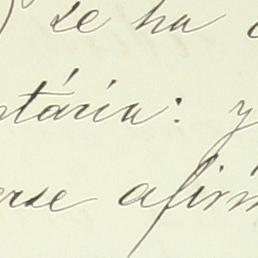 se ha
ntária: y
erse afirm